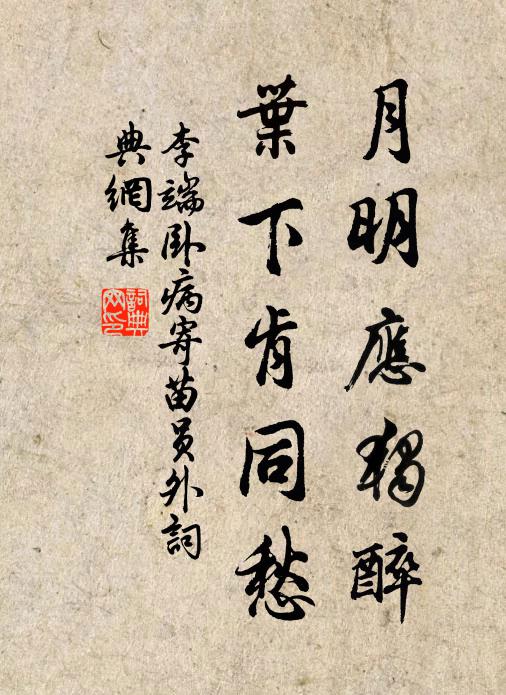 月明應獨醉
葉下肯同愁
李端卧病寄苗员外詞
典網集
詞典
网印